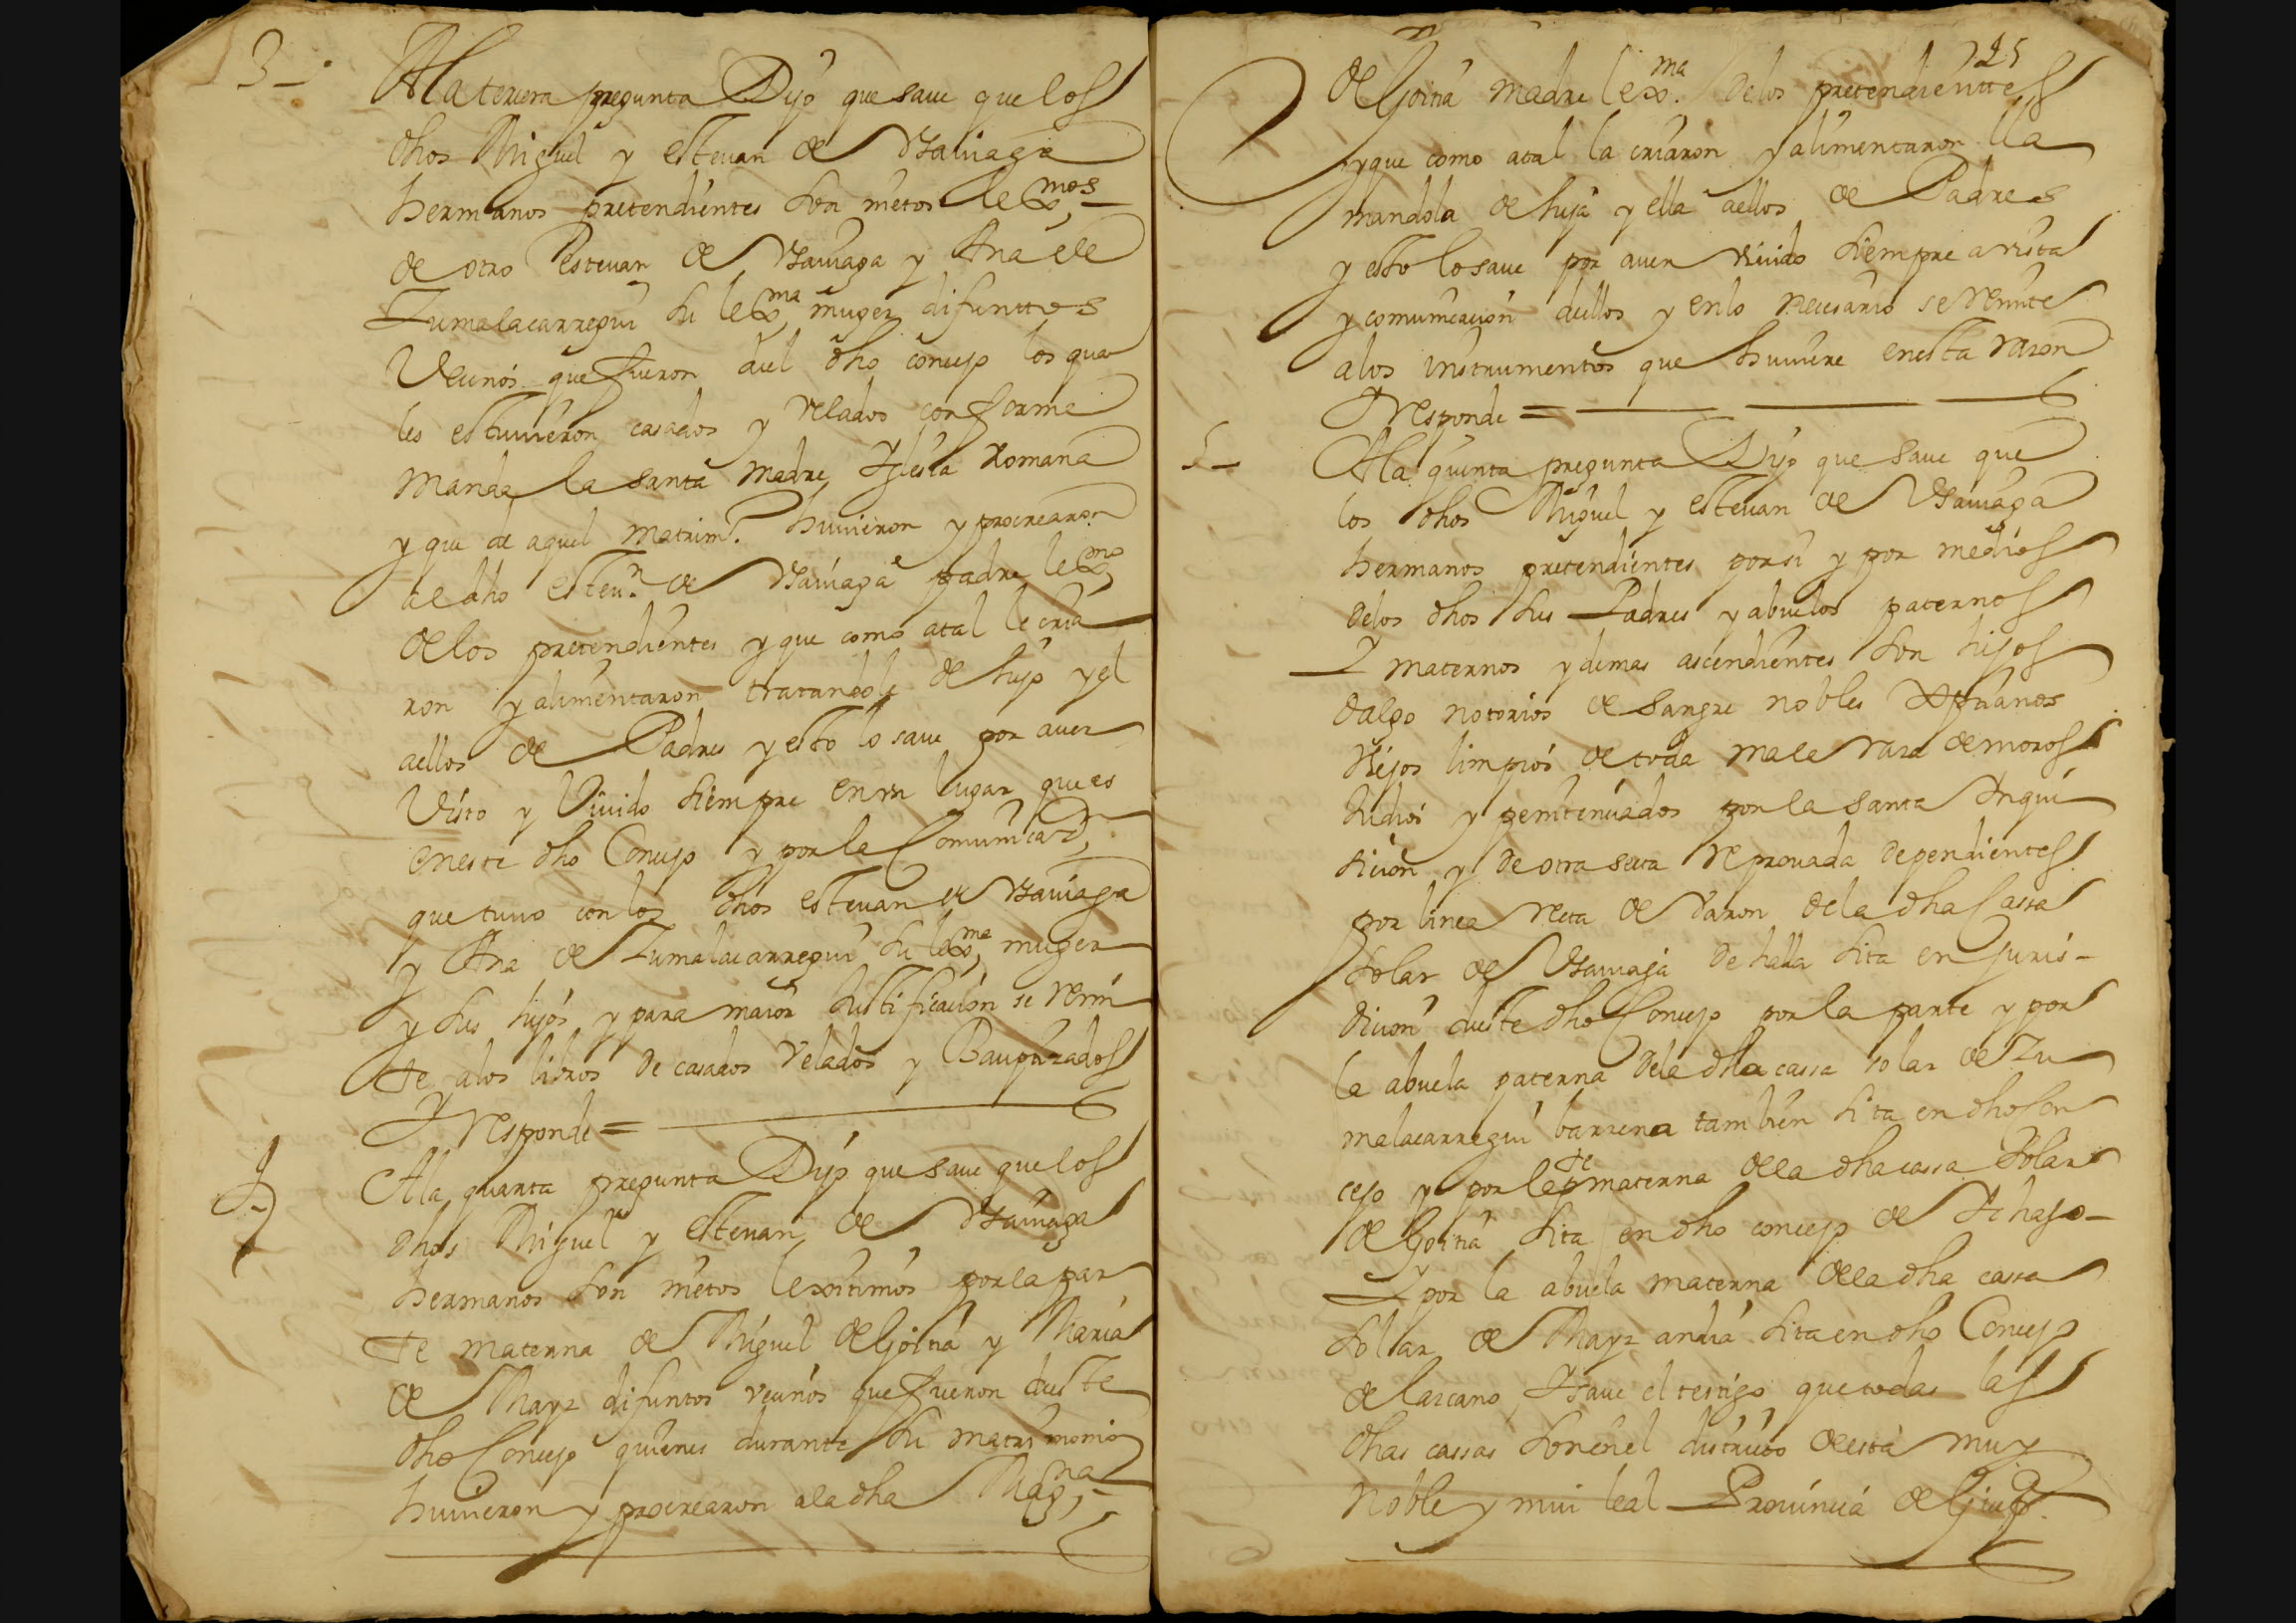 3 -
A la tercera pregunta Dijo que saue que los
dhos Miguel y esteuan de Vsauiaga
hermanos pretendientes son nietos lexmos
de otro esteuan de Vsauiaga y Ana de
Zumalacarregui su lexma muger difunttos
Vecinos que fueron del dho concejo los qua
les estuuieron casados y velados conforme
manda la santa madre Iglesia Romana
y que de aquel matrimo huuieron y procrearon
al dho esteun de Vsauiaga padre lexmo
de los pretendientes y que como atal le cria
ron y alimentaron tratandole de hijo y el
aellos de Padres y esto lo saue por auer
Visto y Viuido siempre en vn lugar que es
en este dho Concejo y por la Comunicaon
que tuuo con los dhos esteuan de Vsauiaga
y Ana de Zumalacarregui su lexma muger
y sus hijos y para maior Justificacion se remi
te alos libros de casados Velados y Bauptizados
Y responde =
4
A la quarta pregunta Dijo que saue que los
dhos Miguel y esteuan de Vsauiaga
hermanos son nietos lexitimos por la par
te materna de Miguel de Goitia y Maria
de Mayz difuntos vecinos que fueron deste
dho Concejo quienes durante su matrimonio
huuieron y procrearon ala dha Magna
125
de Goitia madre lexma de los pretendienttes
y que como atal la criaron y alimentaron lla
mandola de hija y ella aellos de Padres
y esto lo saue por auer viuido siempre a vista
y comunicacion dellos y en lo necesario se remite
alos instrumentos que huuiere en esta razon
Y responde =
5 -
A la quinta pregunta Dijo que saue que
los dhos Miguel y esteuan de Vsauiaga
hermanos pretendientes por si y por medios
de los dhos sus Padres y abuelos paternos
Y maternos y demas ascendientes son hijos
dalgo notorios de sangre nobles xpianos
Viejos limpios de toda mala raza de moros
Judios y penitenciados por la santa Inqui
sicion y de otra secta reprouada dependientes
por linea recta de varon de la dha Cassa
solar de Vsauiaga de sita en Juris-
dicion deste dho Concejo por la parte y por
la abuela paterna de la dha cassa solar de Zu
malacarregui barrena tambien sita en dho con
cejo y por la pte materna de la dha cassa Solar
de Goitia sita en dho concejo de
Y por la abuela materna de la dha cassa
sollar de Mayz andia sita en dho Concejo
de lazcano Y saue el testigo que todas las
dhas cassas son en el districto de esta muy
Noble y mui leal Prouincia de Guipp.